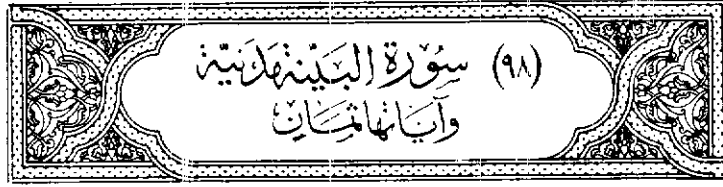 (٩٨) سُورَة الْبَيِّنَة مَدَنِيَّة
وَآيَاتهَا ثَمَان